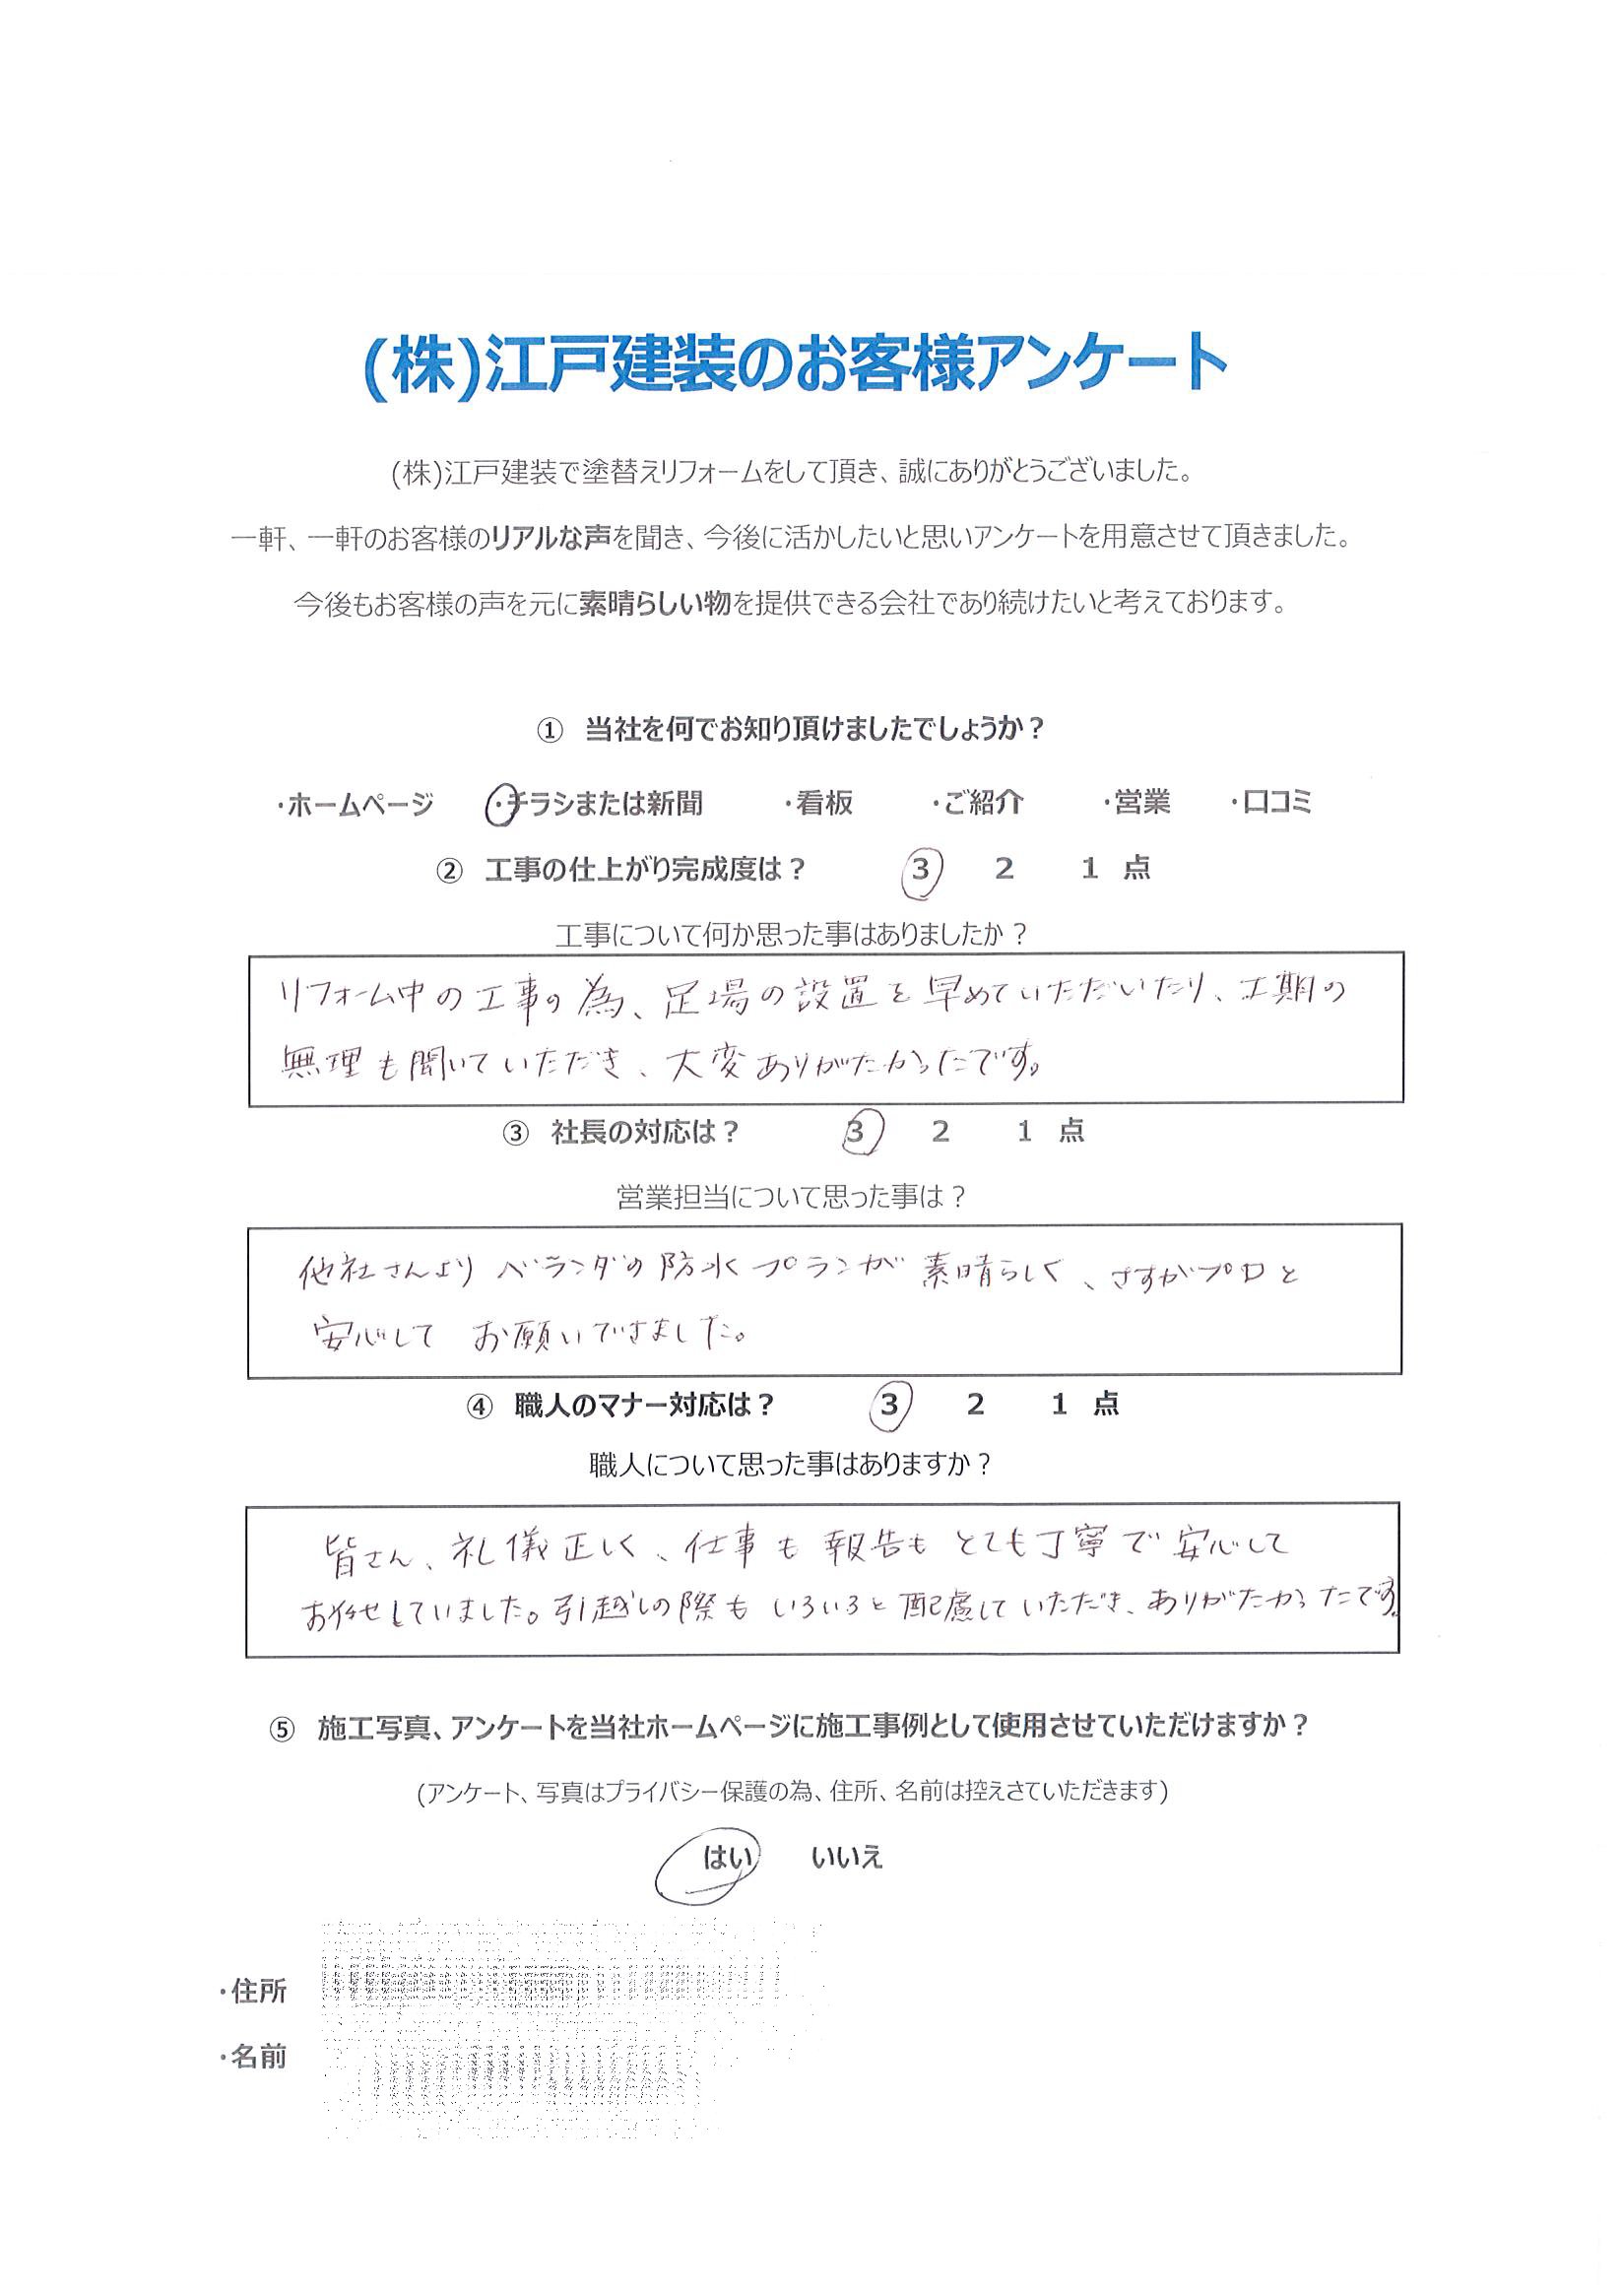 (株)江戸建装のお客様アンケート
(株)江戸建装で塗替えリフォームをして頂き、誠にありがとうございました。
一軒、一軒のお客様のリアルな声を聞き、今後に活かしたいと思いアンケートを用意させて頂きました。
今後もお客様の声を元に素晴らしい物を提供できる会社であり続けたいと考えております。
① 当社を何でお知り頂けましたでしょうか？
・ホームページ ・チラシまたは新聞 ・看板 ・ご紹介 ・営業 ・口コミ
② 工事の仕上がり完成度は？ 3 2 1 点
工事について何か思った事はありましたか？
リフォーム中の工事の為、足場の設置を早めていただいたり、工期の
無理も聞いていただき、大変ありがたかったです。
③ 社長の対応は？ 3 2 1 点
営業担当について思った事は？
他社さんよりベランダの防水プランが素晴らしく、さすがプロと
安心して お願いできました。
④ 職人のマナー対応は？ 3 2 1 点
職人について思った事はありますか？
皆さん、礼儀正しく、仕事も報告もとても丁寧で安心して
お任せしていました。引越しの際もいろいろと配慮していただき、ありがたかったです。
⑤ 施工写真、アンケートを当社ホームページに施工事例として使用させていただけますか？
(アンケート、写真はプライバシー保護の為、住所、名前は控えさていただきます)
はい いいえ
・住所
・名前